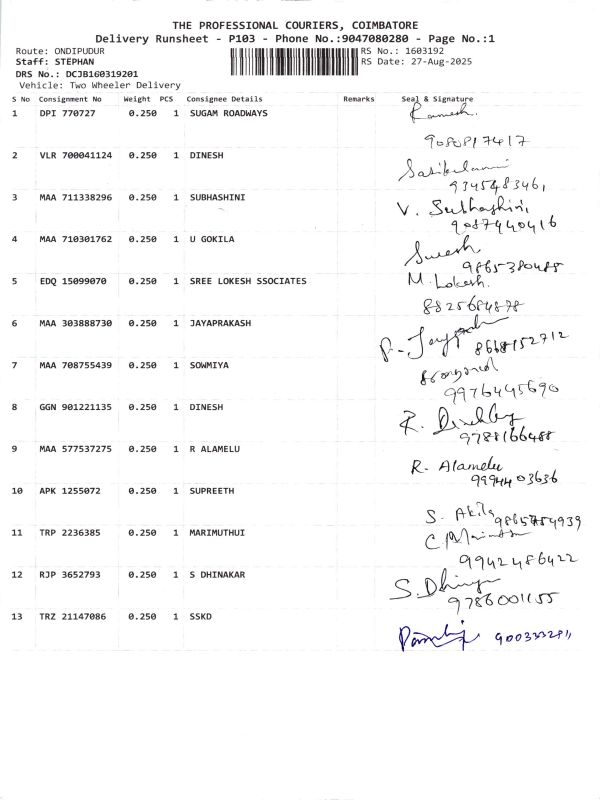 THE PROFESSIONAL COURIERS, COIMBATORE
Delivery Runsheet - P103 - Phone No.:9047080280 - Page No.:1
Route: ONDIPUDUR RS No.: 1603192
Staff: STEPHAN RS Date: 27-Aug-2025
DRS No.: DCJB160319201
Vehicle: Two Wheeler Delivery
S No Consignment No Weight PCS Consignee Details Remarks Seal & Signature
1 DPI 770727 0.250 1 SUGAM ROADWAYS Ramesh.
9080817417
2 VLR 700041124 0.250 1 DINESH
9345483461
3 MAA 711338296 0.250 1 SUBHASHINI V. Subhashini,
9087440416
4 MAA 710301762 0.250 1 U GOKILA Suresh
9865380485
5 EDQ 15099070 0.250 1 SREE LOKESH SSOCIATES M. Lokesh.
8825684878
6 MAA 303888730 0.250 1 JAYAPRAKASH
8668152712
7 MAA 708755439 0.250 1 SOWMIYA
9976445690
8 GGN 901221135 0.250 1 DINESH R.
9788166488
9 MAA 577537275 0.250 1 R ALAMELU R. Alamelu
9994403636
10 APK 1255072 0.250 1 SUPREETH
S. Akila 9865754939
11 TRP 2236385 0.250 1 MARIMUTHUI
9942486422
12 RJP 3652793 0.250 1 S DHINAKAR
9786001155
13 TRZ 21147086 0.250 1 SSKD